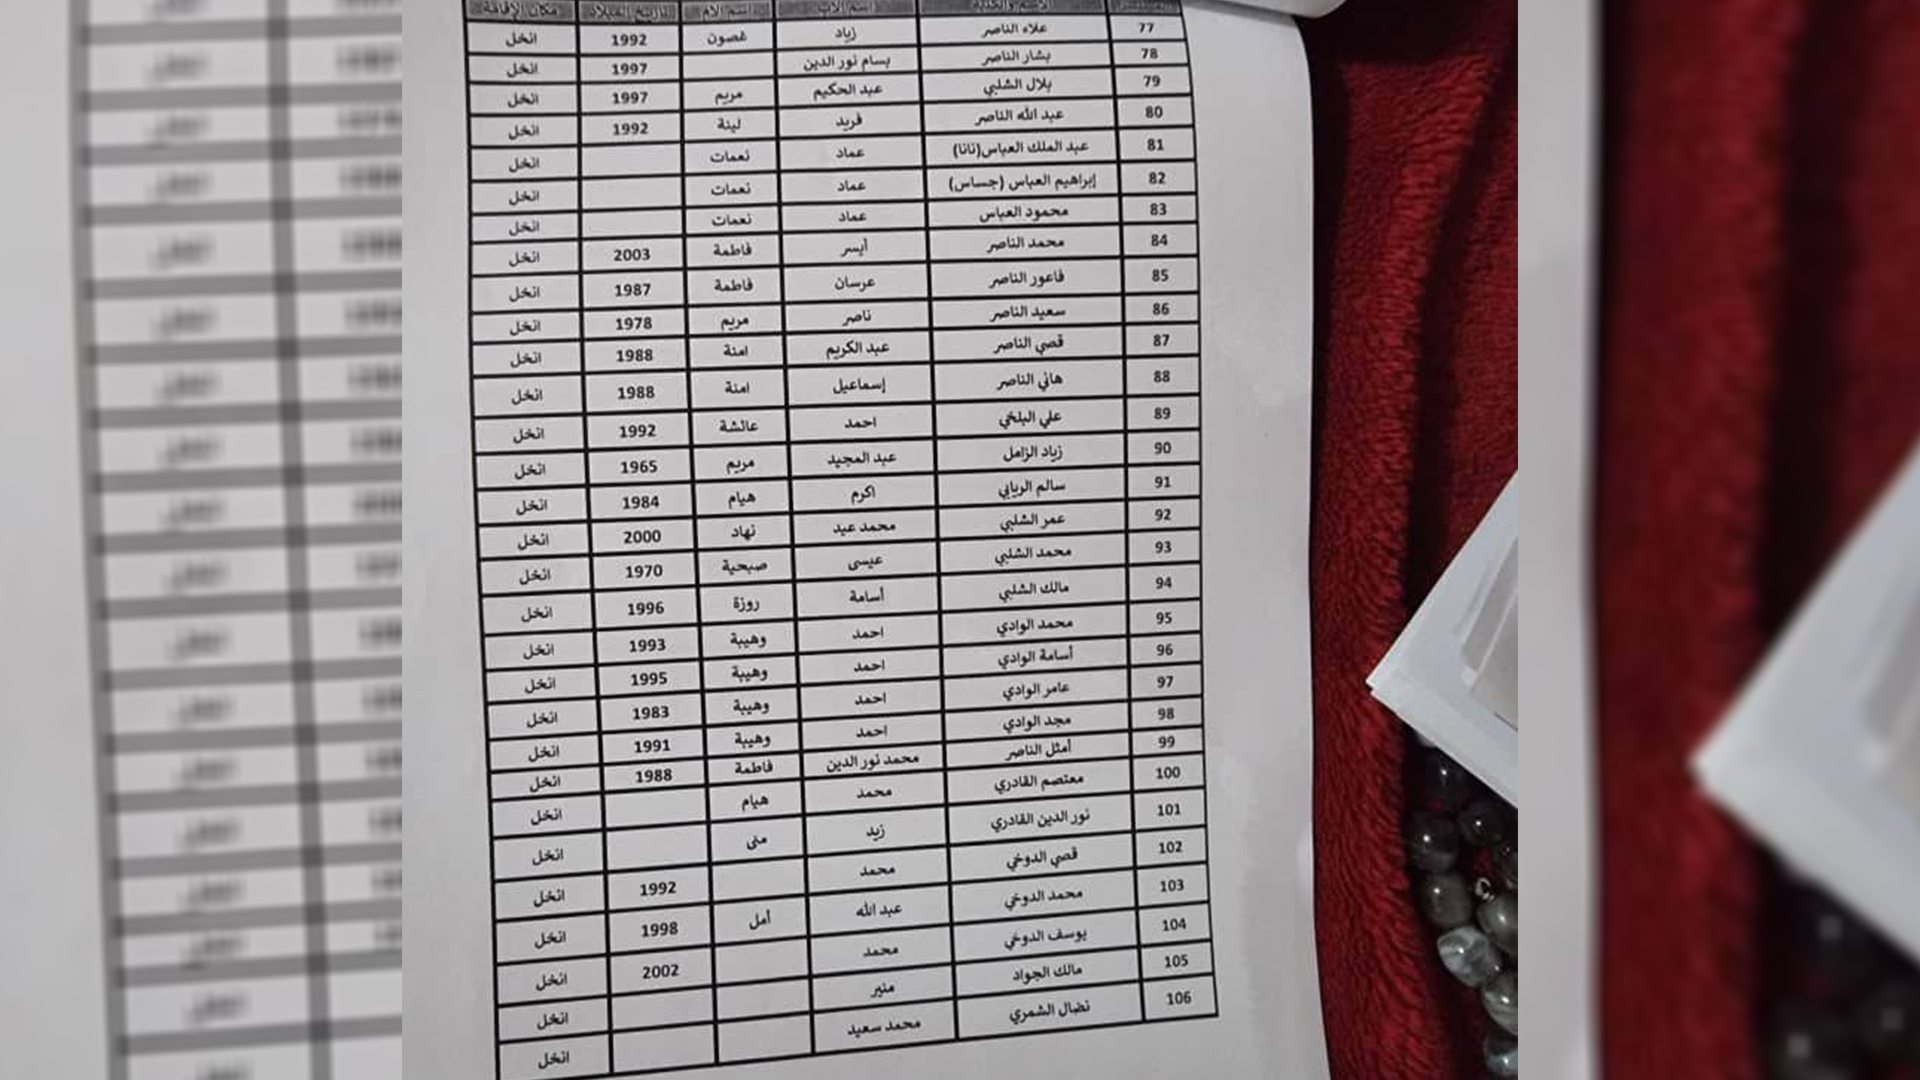 الاسم والكنية اسم الأب اسم الأم تاريخ الميلاد مكان الإقامة
77 علاء الناصر زياد غصون 1992 انخل
78 بشار الناصر بسام نور الدين 1997 انخل
79 بلال الشلبي عبد الحكيم مريم 1997 انخل
80 عبد الله الناصر فريد لينة 1992 انخل
81 عبد الملك العباس(نانا) عماد نعمات انخل
82 إبراهيم العباس (جساس) عماد نعمات انخل
83 محمود العباس عماد نعمات انخل
84 محمد الناصر أيسر فاطمة 2003 انخل
85 فاعور الناصر عرسان فاطمة 1987 انخل
86 سعيد الناصر ناصر مريم 1978 انخل
87 قصي الناصر عبد الكريم امنة 1988 انخل
88 هاني الناصر إسماعيل امنة 1988 انخل
89 علي البلخي احمد عائشة 1992 انخل
90 زياد الزامل عبد المجيد مريم 1965 انخل
91 سالم الريابي اكرم هيام 1984 انخل
92 عمر الشلبي محمد عيد نهاد 2000 انخل
93 محمد الشلبي عيسى صبحية 1970 انخل
94 مالك الشلبي أسامة روزة 1996 انخل
95 محمد الوادي احمد وهيبة 1993 انخل
96 أسامة الوادي احمد وهيبة 1995 انخل
97 عامر الوادي احمد وهيبة 1983 انخل
98 مجد الوادي احمد وهيبة 1991 انخل
99 أمثل الناصر محمد نور الدين فاطمة 1988 انخل
100 معتصم القادري محمد هيام انخل
101 نور الدين القادري زيد منى انخل
102 قصي الدوخي محمد 1992 انخل
103 محمد الدوخي عبد الله أمل 1998 انخل
104 يوسف الدوخي محمد 2002 انخل
105 مالك الجواد منير انخل
106 نضال الشمري محمد سعيد انخل